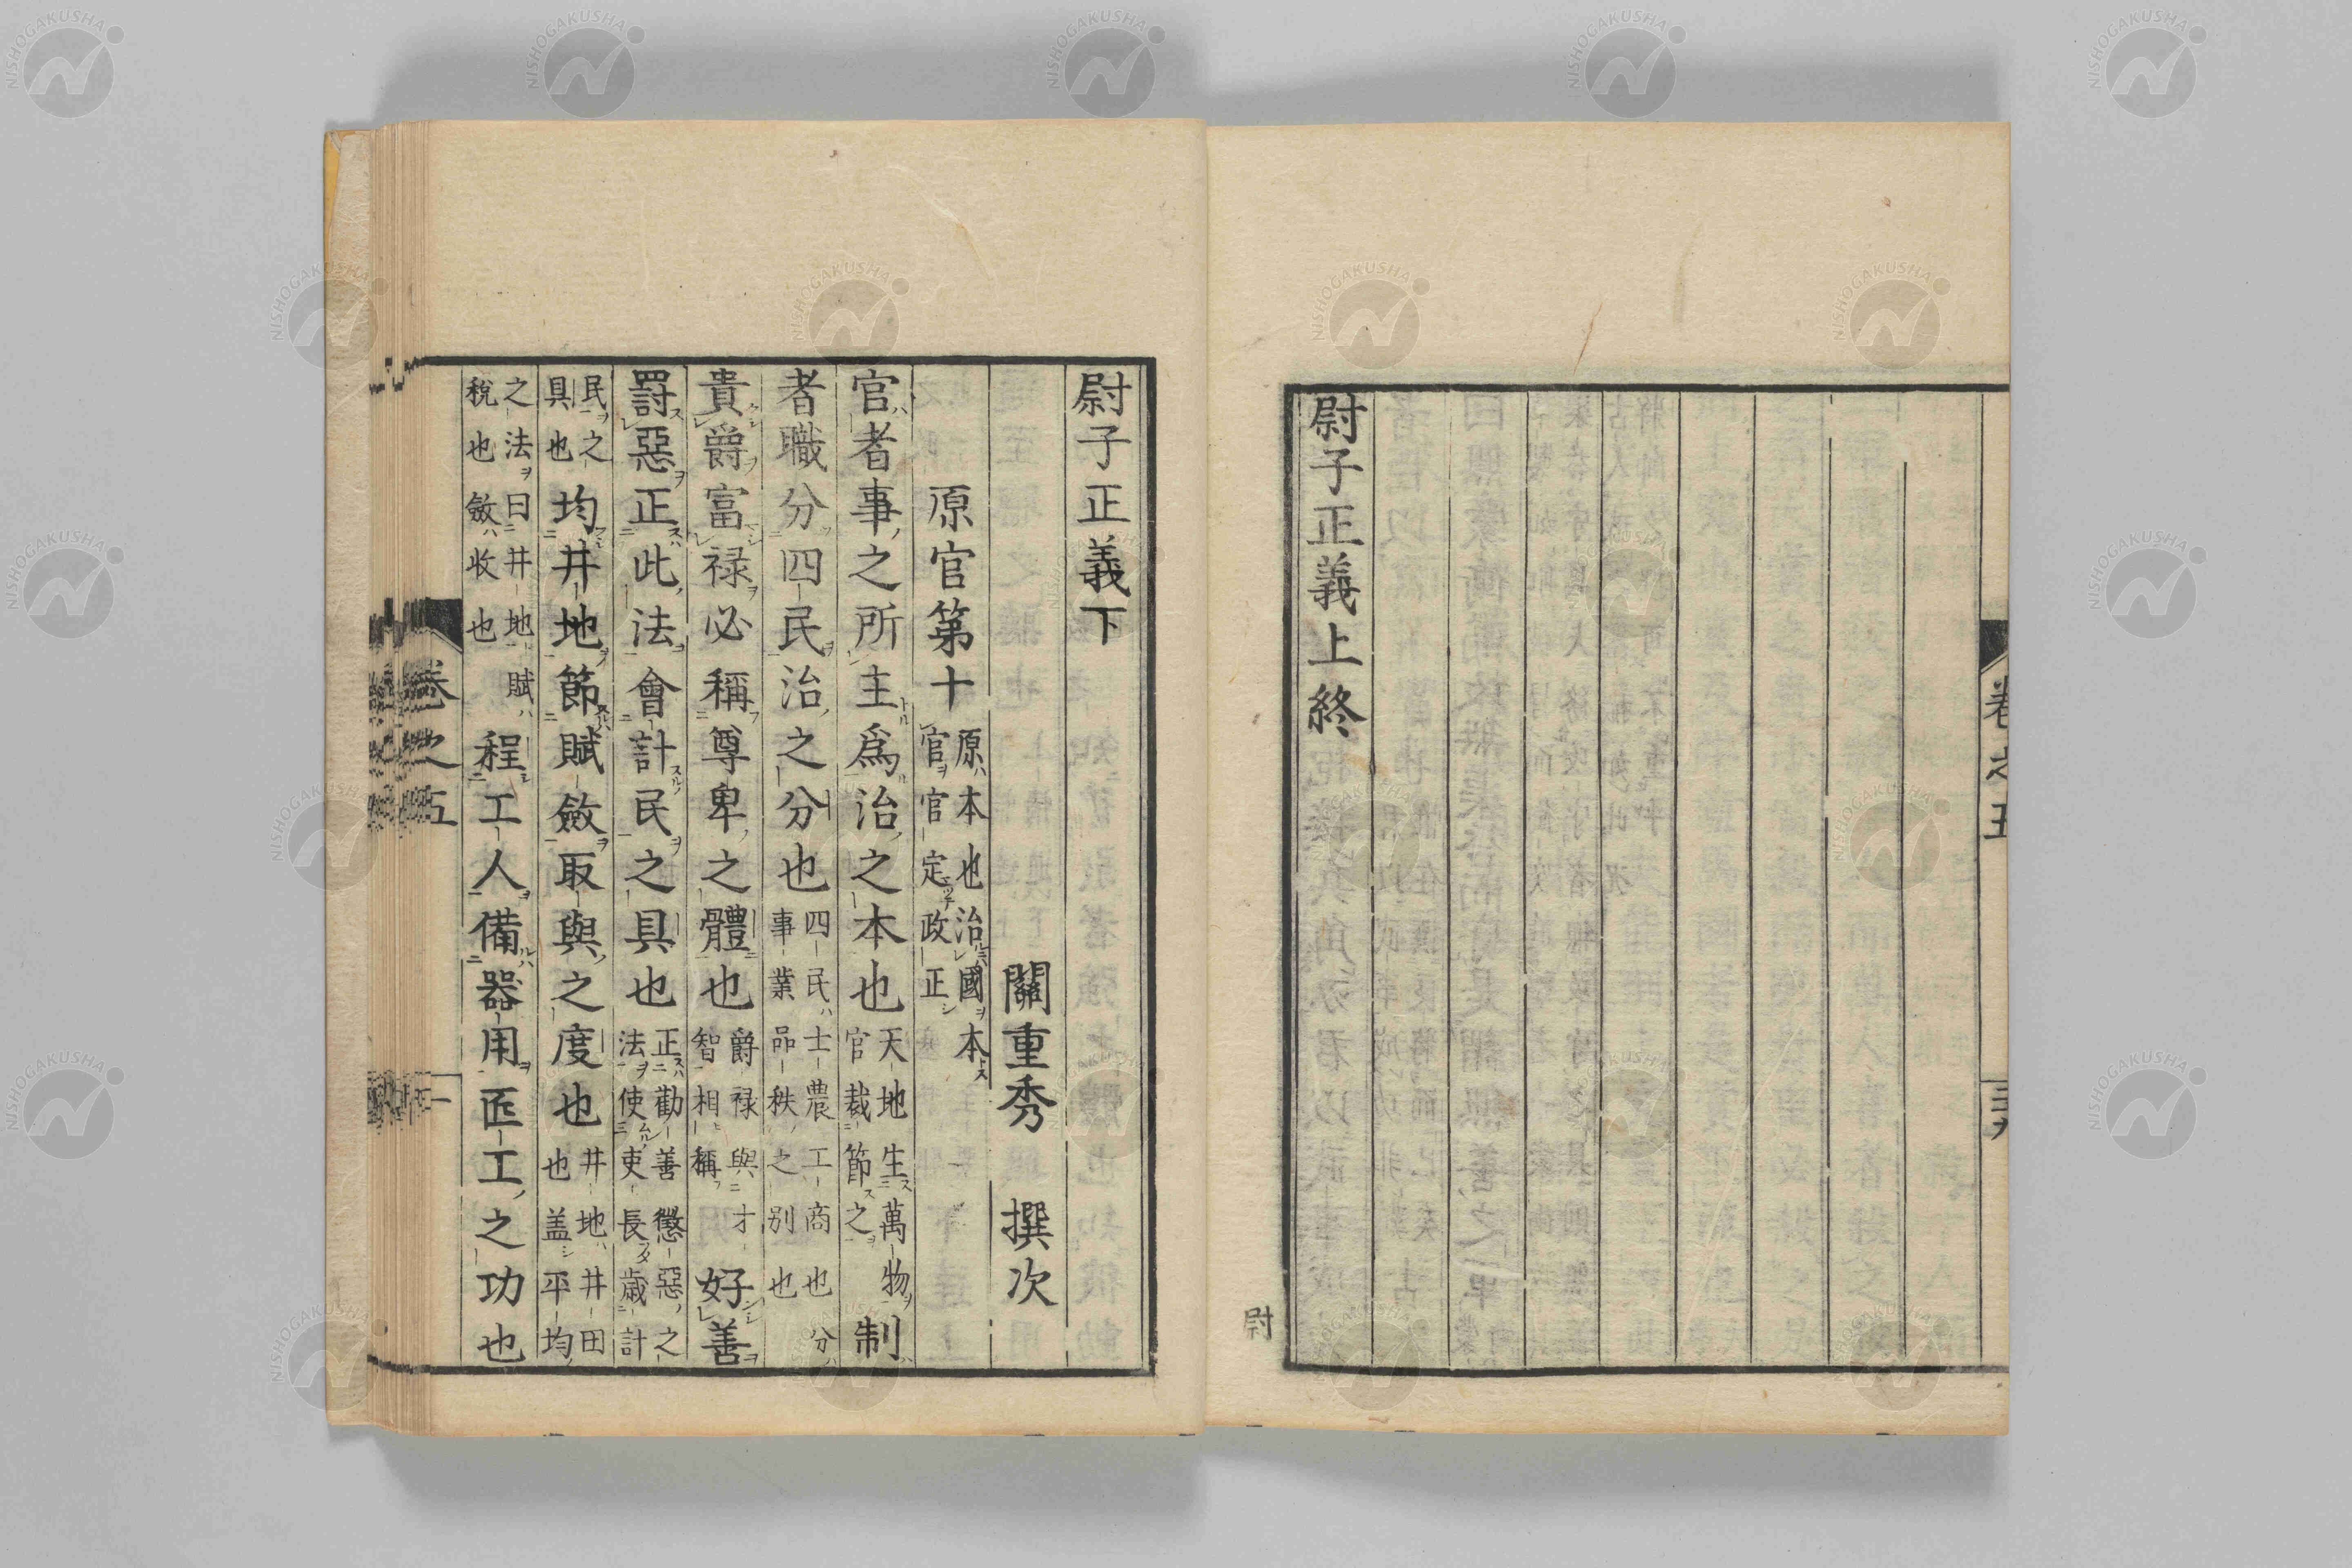 卷之五
尉子正義上終
尉
尉子正義下
關重秀 撰次
原官第十 原本也治國本官官定政正
官者事之所主爲治之本也 天地生萬物官裁節之 制
者職分四民治之分也 四民士農工商也 分事業品秩之別也
貴爵富祿必稱尊卑之體也 爵祿與才智相稱 好善
罰惡正此法會計民之具也 正勸善懲惡之法使吏長歳計
民之具也 均井地節賦斂取與之度也 井地井田也盖平均
之法曰井地 賦稅也斂收也 程工人備器用匠工之功也
卷之五
一
NISHOGAKUSHA